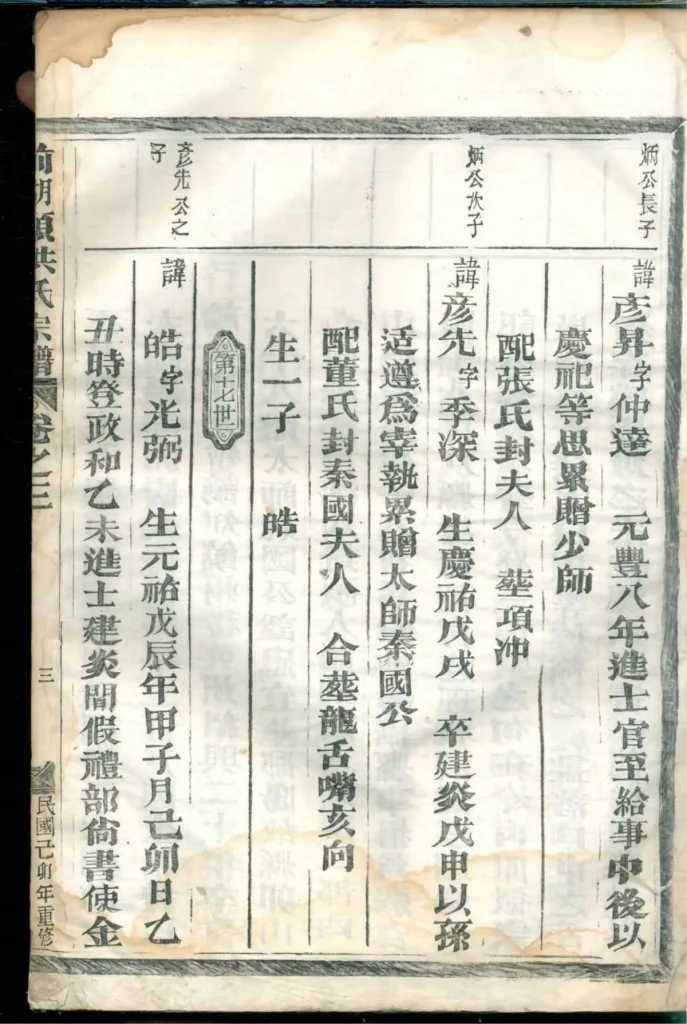 炳公長子
諱彥昇字仲達　元豐八年進士官至給事中後以
慶祀等恩累贈少師
配張氏封夫人　塟項冲
炳公次子
諱彥先字季深　生慶祐戊戌　卒建炎戊申以孫
适遵爲宰執累贈太師秦國公
配董氏封秦國夫人　合塟龍舌嘴亥向
生一子　皓
第十七世
彥先公之
子
諱皓字光弼　生元祐戊辰年甲子月己卯日乙
丑時登政和乙未進士建炎間假禮部尙書使金
前湖頭洪氏宗譜　卷之三
三
民國己卯年重修